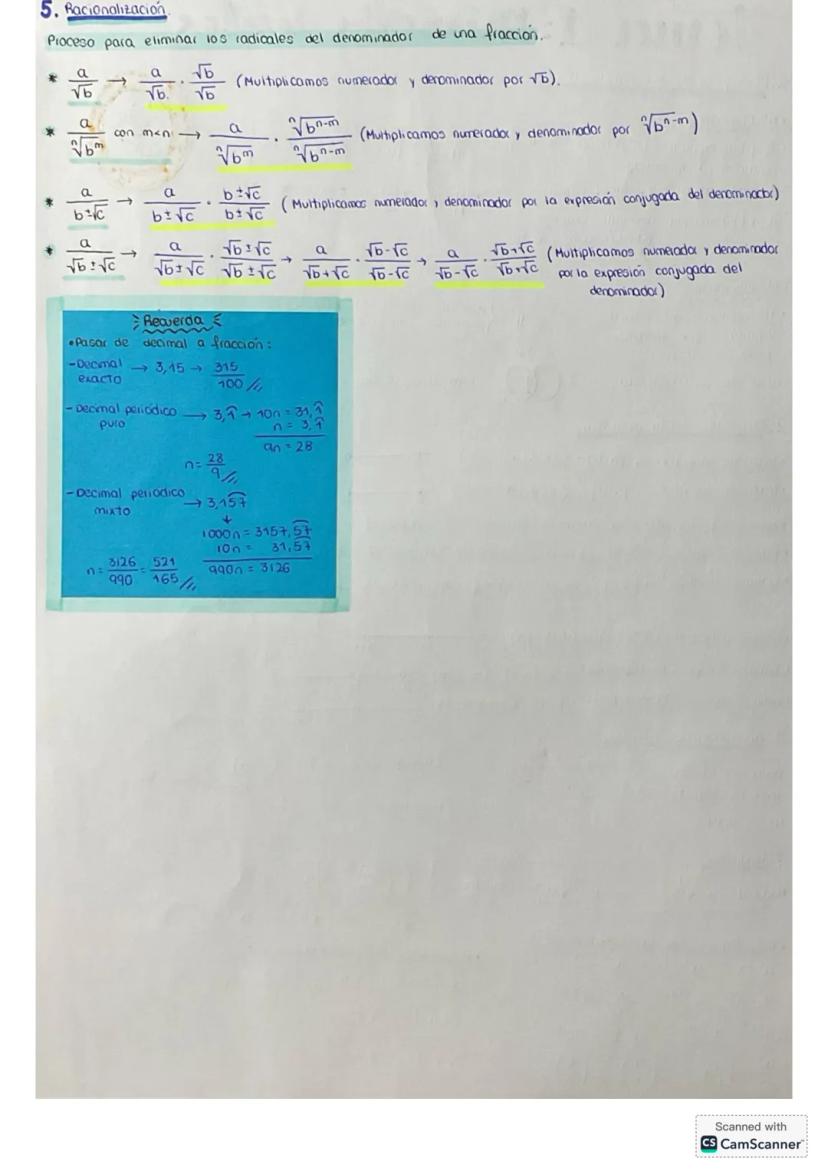 5. Racionalización.
Proceso para eliminar los radicales del denominador de una fracción.
* a/√b → a/√b · √b/√b (Multiplicamos numerador y denominador por √b).
* a/ⁿ√bᵐ con m<n → a/ⁿ√bᵐ · ⁿ√bⁿ⁻ᵐ/ⁿ√bⁿ⁻ᵐ (Multiplicamos numerador y denominador por ⁿ√bⁿ⁻ᵐ)
* a/b±√c → a/b±√c · b±√c/b±√c (Multiplicamos numerador y denominador por la expresión conjugada del denominador)
* a/√b±√c → a/√b±√c · √b±√c/√b±√c → a/√b+√c · √b-√c/√b-√c → a/√b-√c · √b+√c/√b+√c (Multiplicamos numerador y denominador
por la expresión conjugada del
denominador)
Recuerda
• Pasar de decimal a fracción:
- Decimal exacto → 3,15 → 315/100
- Decimal periódico puro → 3,1̂ → 10n = 31,1̂
n = 3,1̂
9n = 28
n = 28/9
- Decimal periódico mixto → 3,157
↓
1000n = 3157,57
10n = 31,57
990n = 3126
n = 3126/990 = 521/165
Scanned with
CS CamScanner